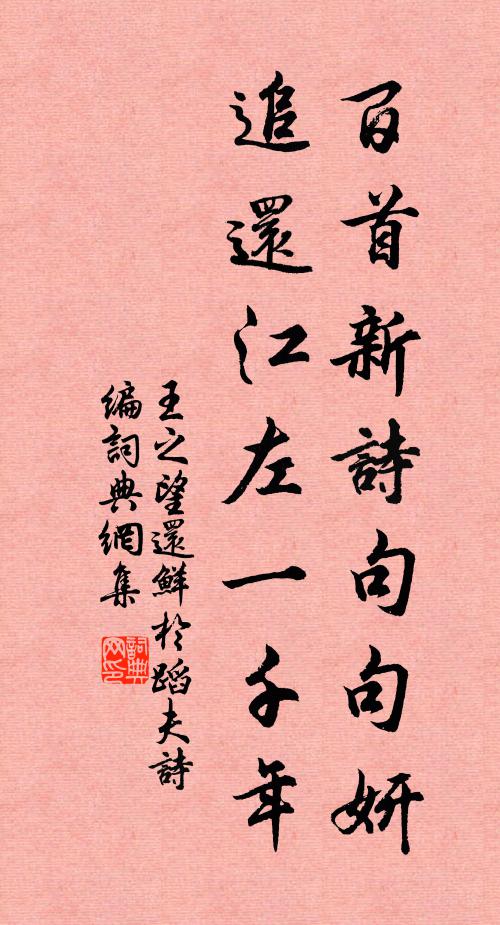 百首新詩句句妍
追還江左一千年
王之望還鮮於蹈夫詩
編詞典網集
詞典網印